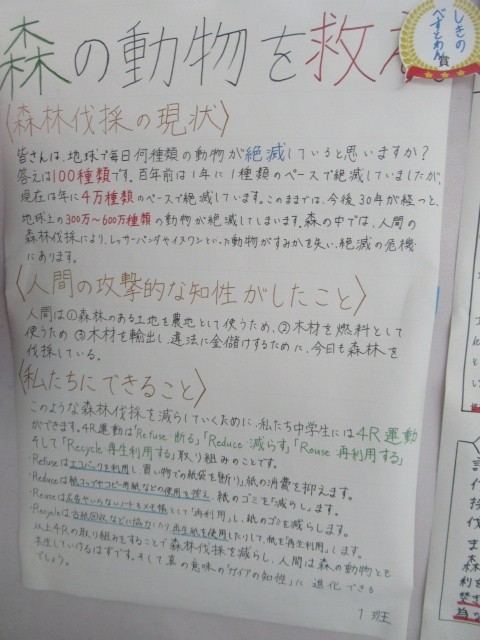 森の動物を救え
しきの
べすとわん
賞
〈森林伐採の現状〉
皆さんは、地球で毎日何種類の動物が絶滅していると思いますか？
答えは100種類です。百年前は1年に1種類のペースで絶滅していましたが、
現在は年に4万種類のペースで絶滅しています。このままでは、今後30年が経つと、
地球上の300万〜600万種類の動物が絶滅してしまいます。森の中では、人間の
森林伐採により、レッサーパンダやイヌワシといった動物がすみかを失い、絶滅の危機
にあります。
〈人間の攻撃的な知性がしたこと〉
人間は①森林のある土地を農地として使うため、②木材を燃料として
使うため ③木材を輸出し、違法に金儲けするために、今日も森林を
伐採している。
〈私たちにできること〉
このような森林伐採を減らしていくために、私たち中学生には4R運動
ができます。4R運動は「Refuse 断る」「Reduce 減らす」「Reuse 再利用する」
そして「Recycle 再生利用する」取り組みのことです。
・Refuseはエコバックを利用し、買い物での紙袋を断り」紙の消費を抑えます。
・Reduceは紙コップやコピー用紙などの使用を控え、紙のゴミを「減らし」ます。
・Reuseは広告やいらないノートをメモ帳として「再利用」し、紙のゴミを減らします。
・Recycleは古紙回収などに協力したり再生紙を使用したりして、紙を「再生利用」します。
以上4Rの取り組みをすることで森林伐採を減らし、人間は森の動物とも
共生していけるはずです。そして真の意味の「ガイアの知性」に進化できる
でしょう。
1班